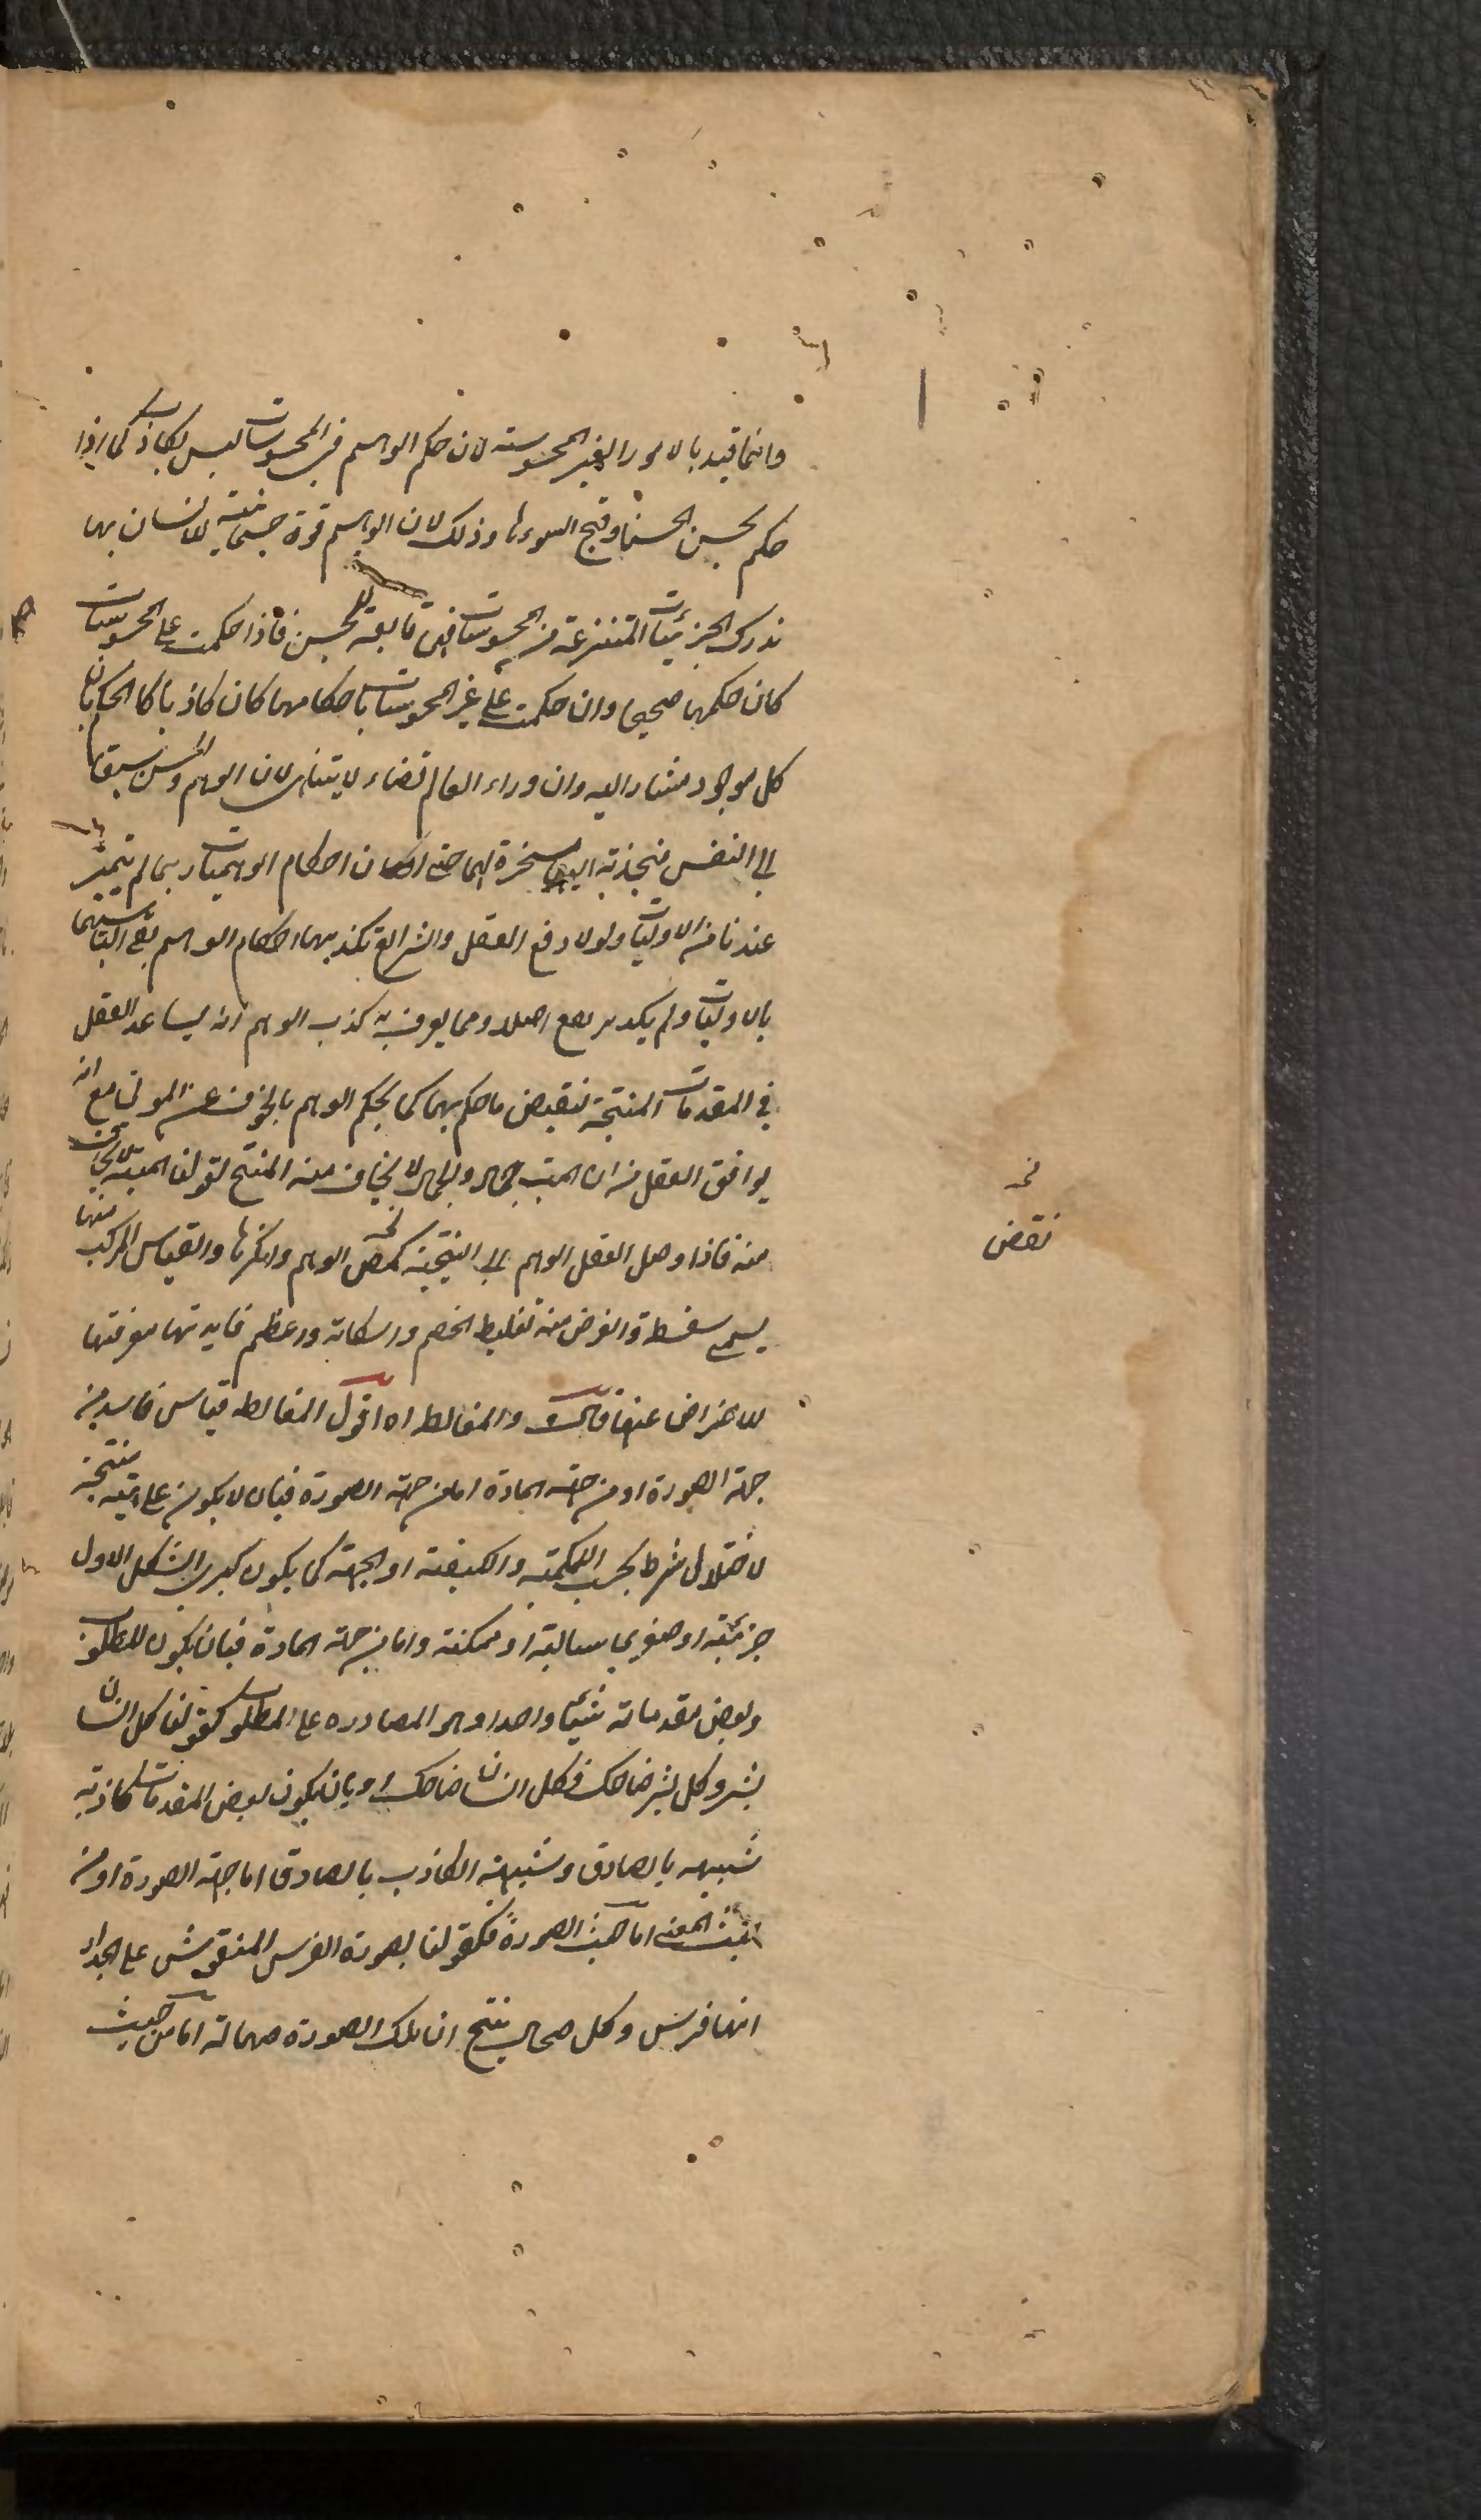 وانما قيد بالامور الغير المحسوسة لان حكم الوهم في المحسوسات ليس بكاذب كما اذا
حكم بحسن الحسنا وقبح السوءا وذلك لان الوهم قوة جسمانية للانسان بها
ندرك الجزئيات المنتزعة من المحسوسات فهى تابعة للحس فاذا حكمت على المحسوسات
كان حكمها صحيحا وان حكمت على غير المحسوسات باحكامها كان كاذبا كالحكم بان
كل موجود مشار اليه وان وراء العالم فضاء لا يتناهى لان الوهم والحس سبقا
الى النفس منجذبة اليهما مسخرة لهما حتى ان احكام الوهميات ربما لم تتميز
عندنا من الاوليات ولولا دفع العقل والشرائع تكذيبهما احكام الوهم بقى التباسهما
بالاوليات ولم يكد يرتفع اصلا ومما يعرف به كذب الوهم انه يساعد العقل
في المقدمات المنتجة لنقيض ما حكم بها كما يحكم الوهم بالخوف عن الموتى مع انه
يوافق العقل من ان الميت جماد والجماد لا يخاف منه المنتج لقولنا الميت لا يخاف
منه فاذا وصل العقل الوهم الى النتيجة نكص الوهم وانكرها والقياس المركب منها
يسمى سفسطة والغرض منه تغليط الخصم واسكاته واعظم فايدتها معرفتها
للاحتراض عنها قال والمغالطة اه اقول المغالطه قياس فاسد من
جهة الصورة او من جهة المادة اما من جهة الصورة فبان لا يكون على هيئة منتجة
لاختلال شرط بحسب الكمية والكيفية او الجهة كما يكون كبرى الشكل الاول
جزئية او صغرى سالبة او ممكنة واما من جهة المادة فبان يكون المطلوب
وبعض مقدماته شيئا واحدا وهو المصادره على المطلوب كقولنا كل انسان
بشر وكل بشر ضاحك فكل انسان ضاحك او بان يكون بعض المقدمات كاذبة
شبيهه بالصادق وشبيهة الكاذب بالصادق اما جهة الصورة او من
حيث المعنى اما من حيث الصورة فكقولنا لصورة الفرس المنقوش على الجدار
انها فرس وكل صهال ينتج ان تلك الصورة صهالة اما من حيث
نقض